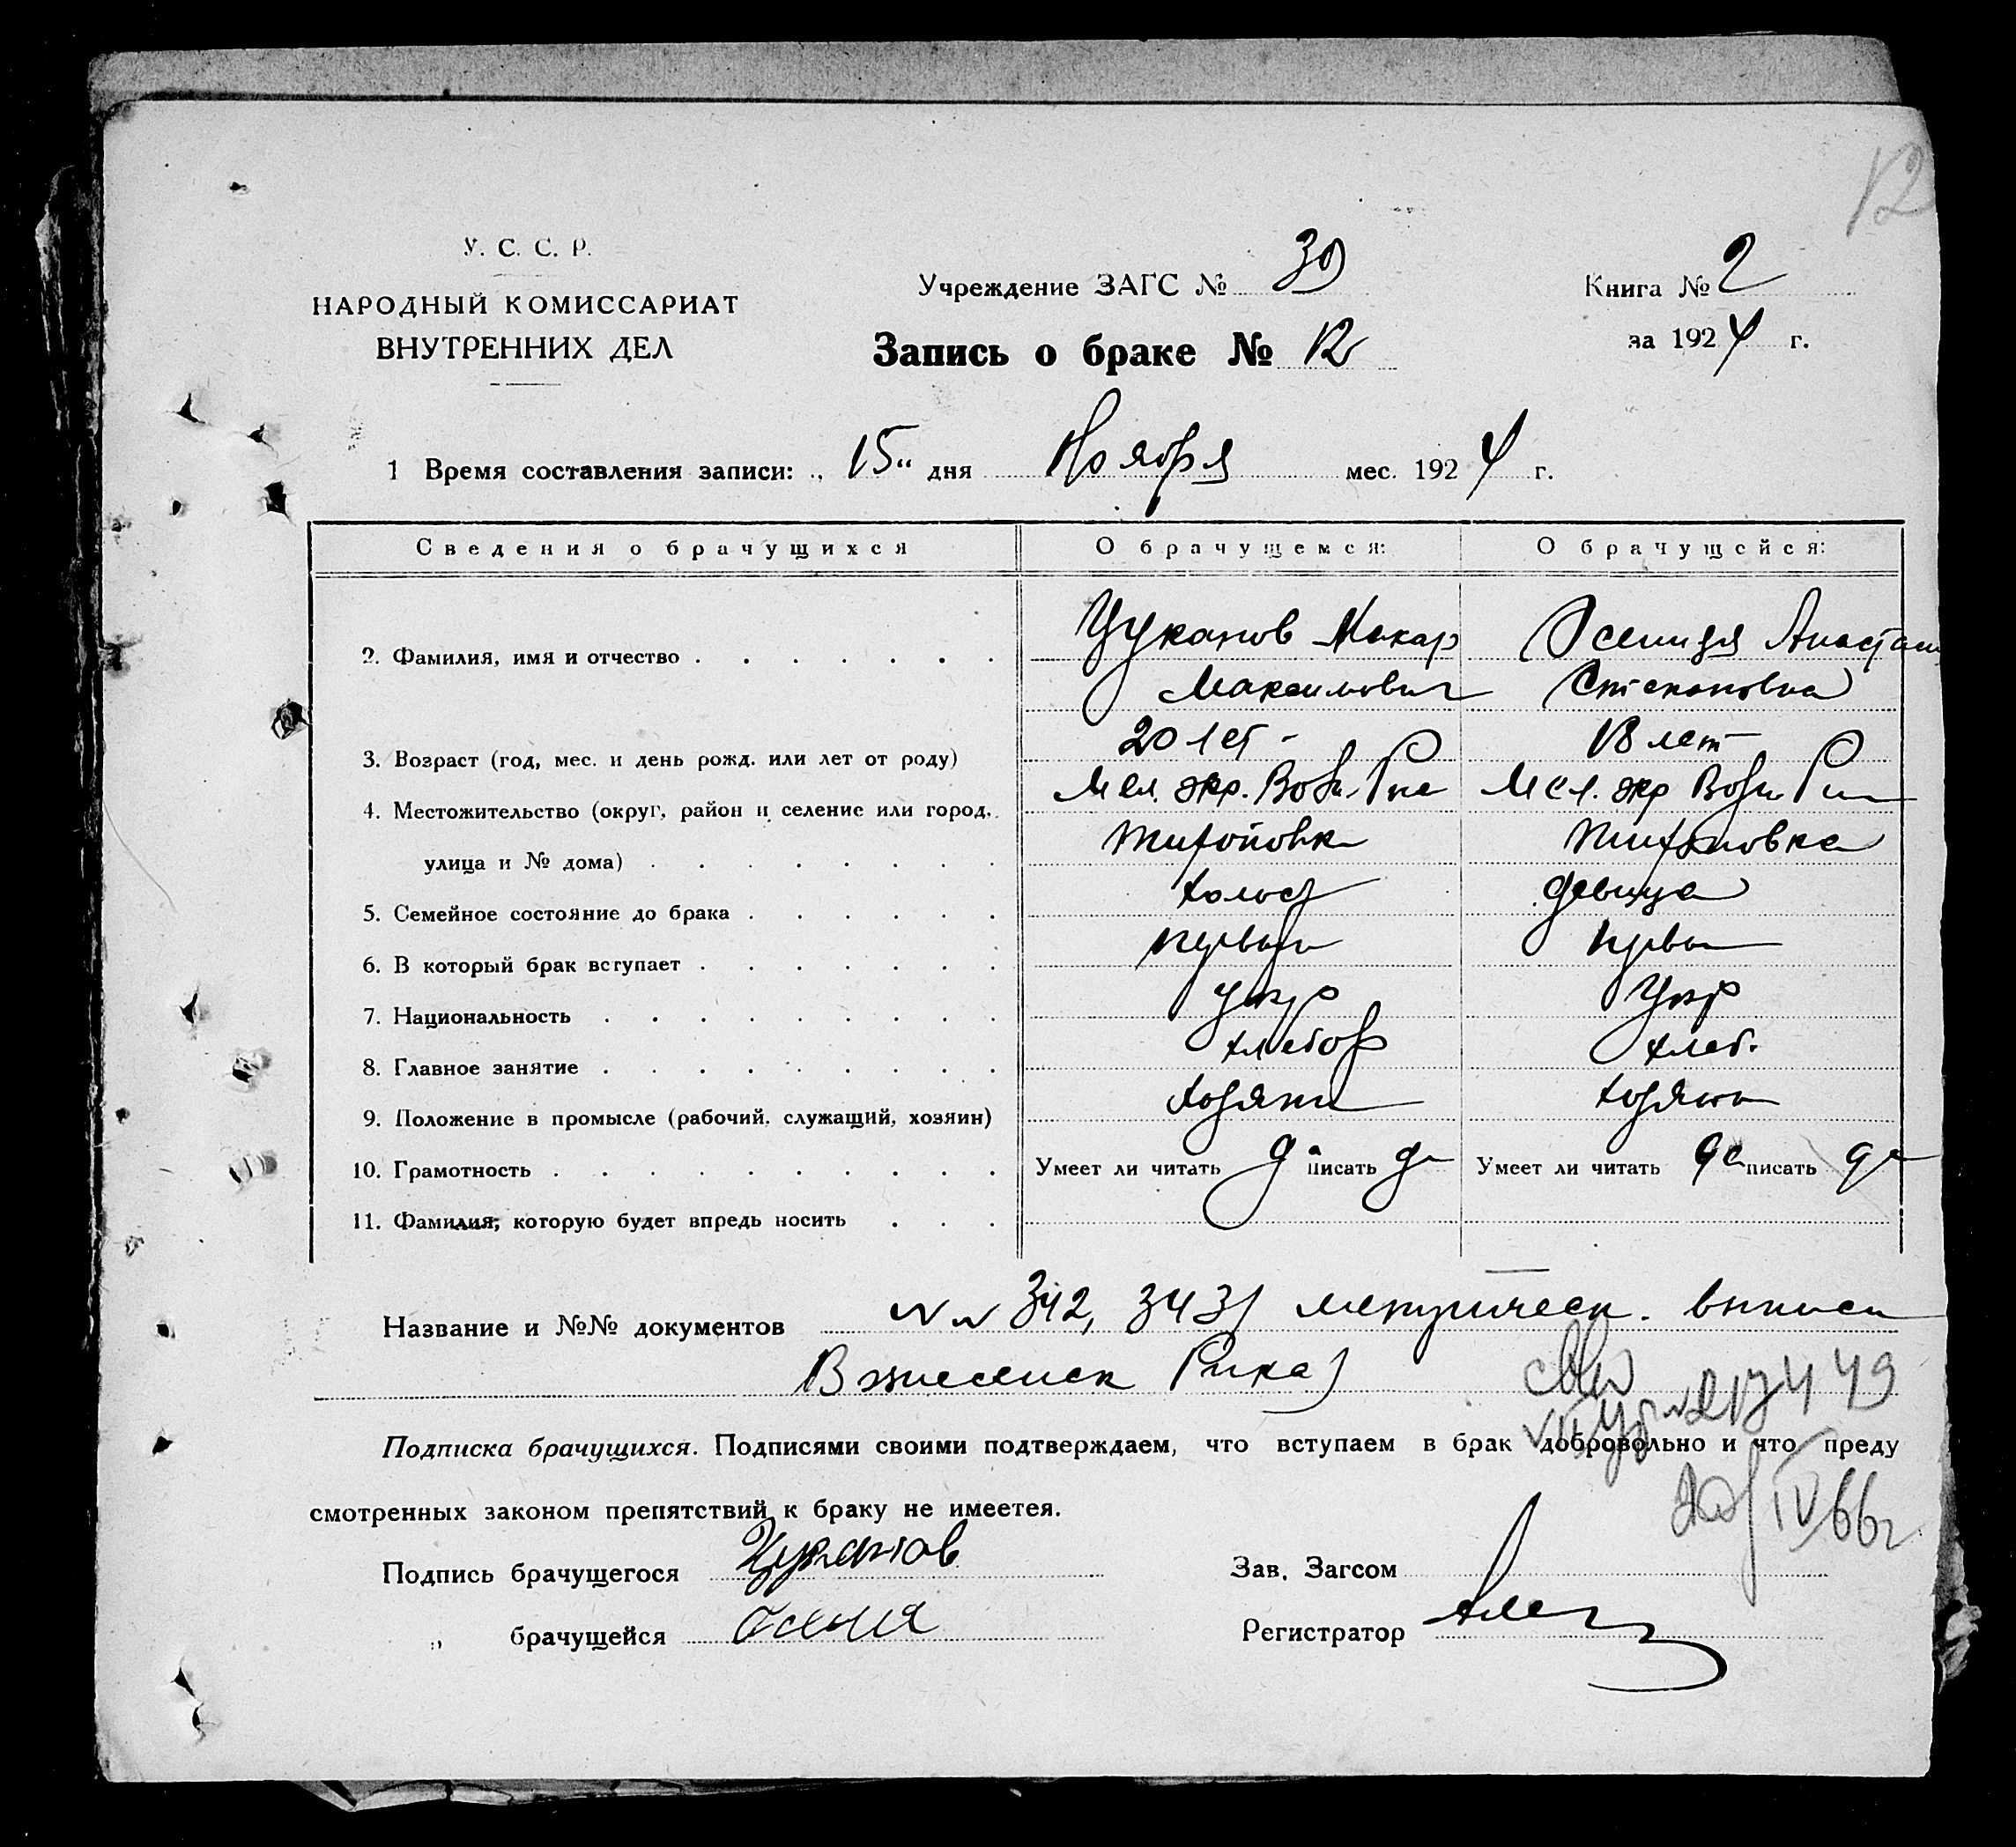 12
У. С. С. Р.
НАРОДНЫЙ КОМИССАРИАТ
ВНУТРЕННИХ ДЕЛ
Учреждение ЗАГС № 39
Книга № 2
Запись о браке № 12
за 1924 г.
1 Время составления записи: „ 15 " дня Ноября мес. 1924 г.
Сведения о брачущихся О брачущемся: О брачущейся:
2. Фамилия, имя и отчество Цуканов Макар
Максимович Степановна
3. Возраст (год, мес. и день рожд. или лет от роду) 20 лет 18 лет
4. Местожительство (округ, район и селение или город, Мел. окр. Мел. окр
улица и № дома) Тихоновка Тихоновка
5. Семейное состояние до брака холост девица
6. В который брак вступает первый первы
7. Национальность укр Укр
8. Главное занятие хлебор хлеб.
9. Положение в промысле (рабочий, служащий, хозяин) хозяин хозяин
10. Грамотность Умеет ли читать да писать да Умеет ли читать да писать да
11. Фамилия, которую будет впредь носить
Название и №№ документов №№ 342, 343 метрическ. выписи
Рика
449
Подписка брачущихся. Подписями своими подтверждаем, что вступаем в брак добровольно и что преду
смотренных законом препятствий к браку не имеется.
IV 66г
Подпись брачущегося Цуканов Зав. Загсом
„ брачущейся Регистратор